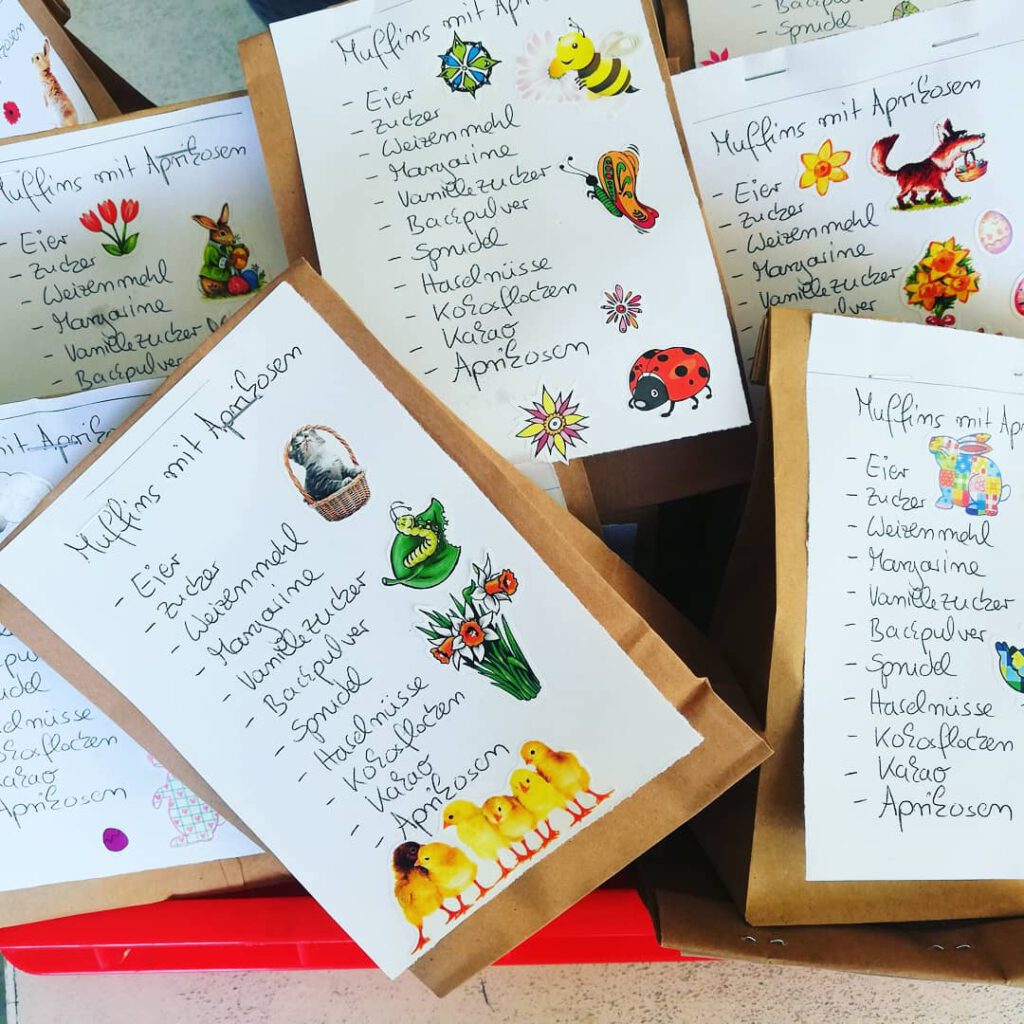 osen
Backpulver
- Sprudel
Muffins mit Aprikosen
- Eier
- Zucker
- Weizenmehl
- Margarine
- Vanillezucker
- Backpulver
- Sprudel
- Haselnüsse
- Kokosflocken
- Kakao
- Aprikosen
Muffins mit Aprikosen
- Eier
- Zucker
- Weizenmehl
- Margarine
- Vanillezucker
- Backpulver
Muffins mit Aprikosen
- Eier
- Zucker
- Weizenmehl
- Margarine
- Vanillezucker
pulver
mit Aprikos
pu
udel
elnüsse
okosflocken
akao
Aprikosen
Muffins mit Aprikosen
- Eier
- Zucker
- Weizenmehl
- Margarine
- Vanillezucker
- Backpulver
- Sprudel
- Haselnüsse
- Kokosflocken
- Kakao
- Aprikosen
Muffins mit Apr
- Eier
- Zucker
- Weizenmehl
- Margarine
- Vanillezucker
- Backpulver
- Sprudel
- Haselnüsse
- Kokosflocken
- Kakao
- Aprikosen